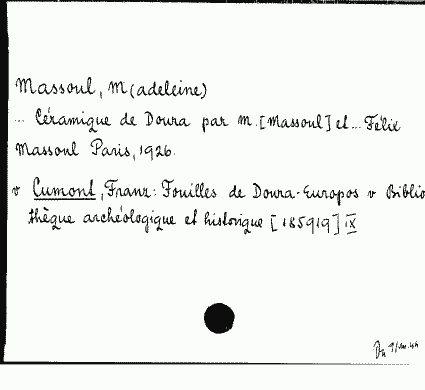 Massoul, M(adeleine)
... Céramique de Doura par M. [Massoul] et ... Félix
Massoul Paris, 1926.
v Cumont, Franz: Fouilles de Doura-Europos v Biblio
thèque archéologique et historique [185919] IX